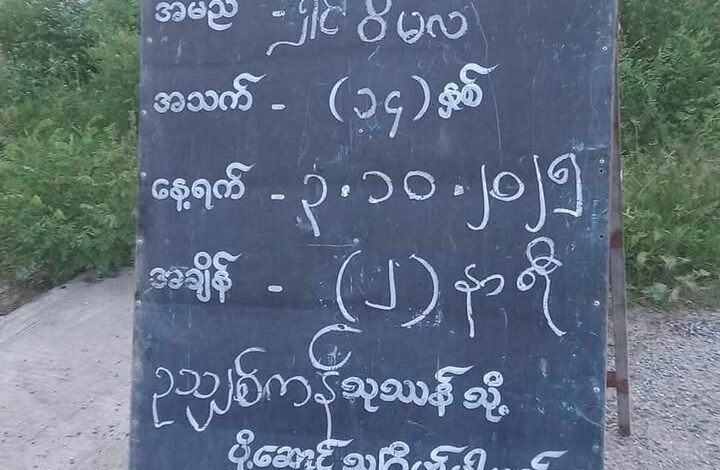 အမည် - ရှင် ဝိမလ
အသက် - (၁၄) နှစ်
နေ့ရက် - ၃.၁၀.၂၀၂၅
အချိန် - (၂) နာရီ
ဥသျှစ်ကန် သုဿန် သို့
ပို့ဆောင်